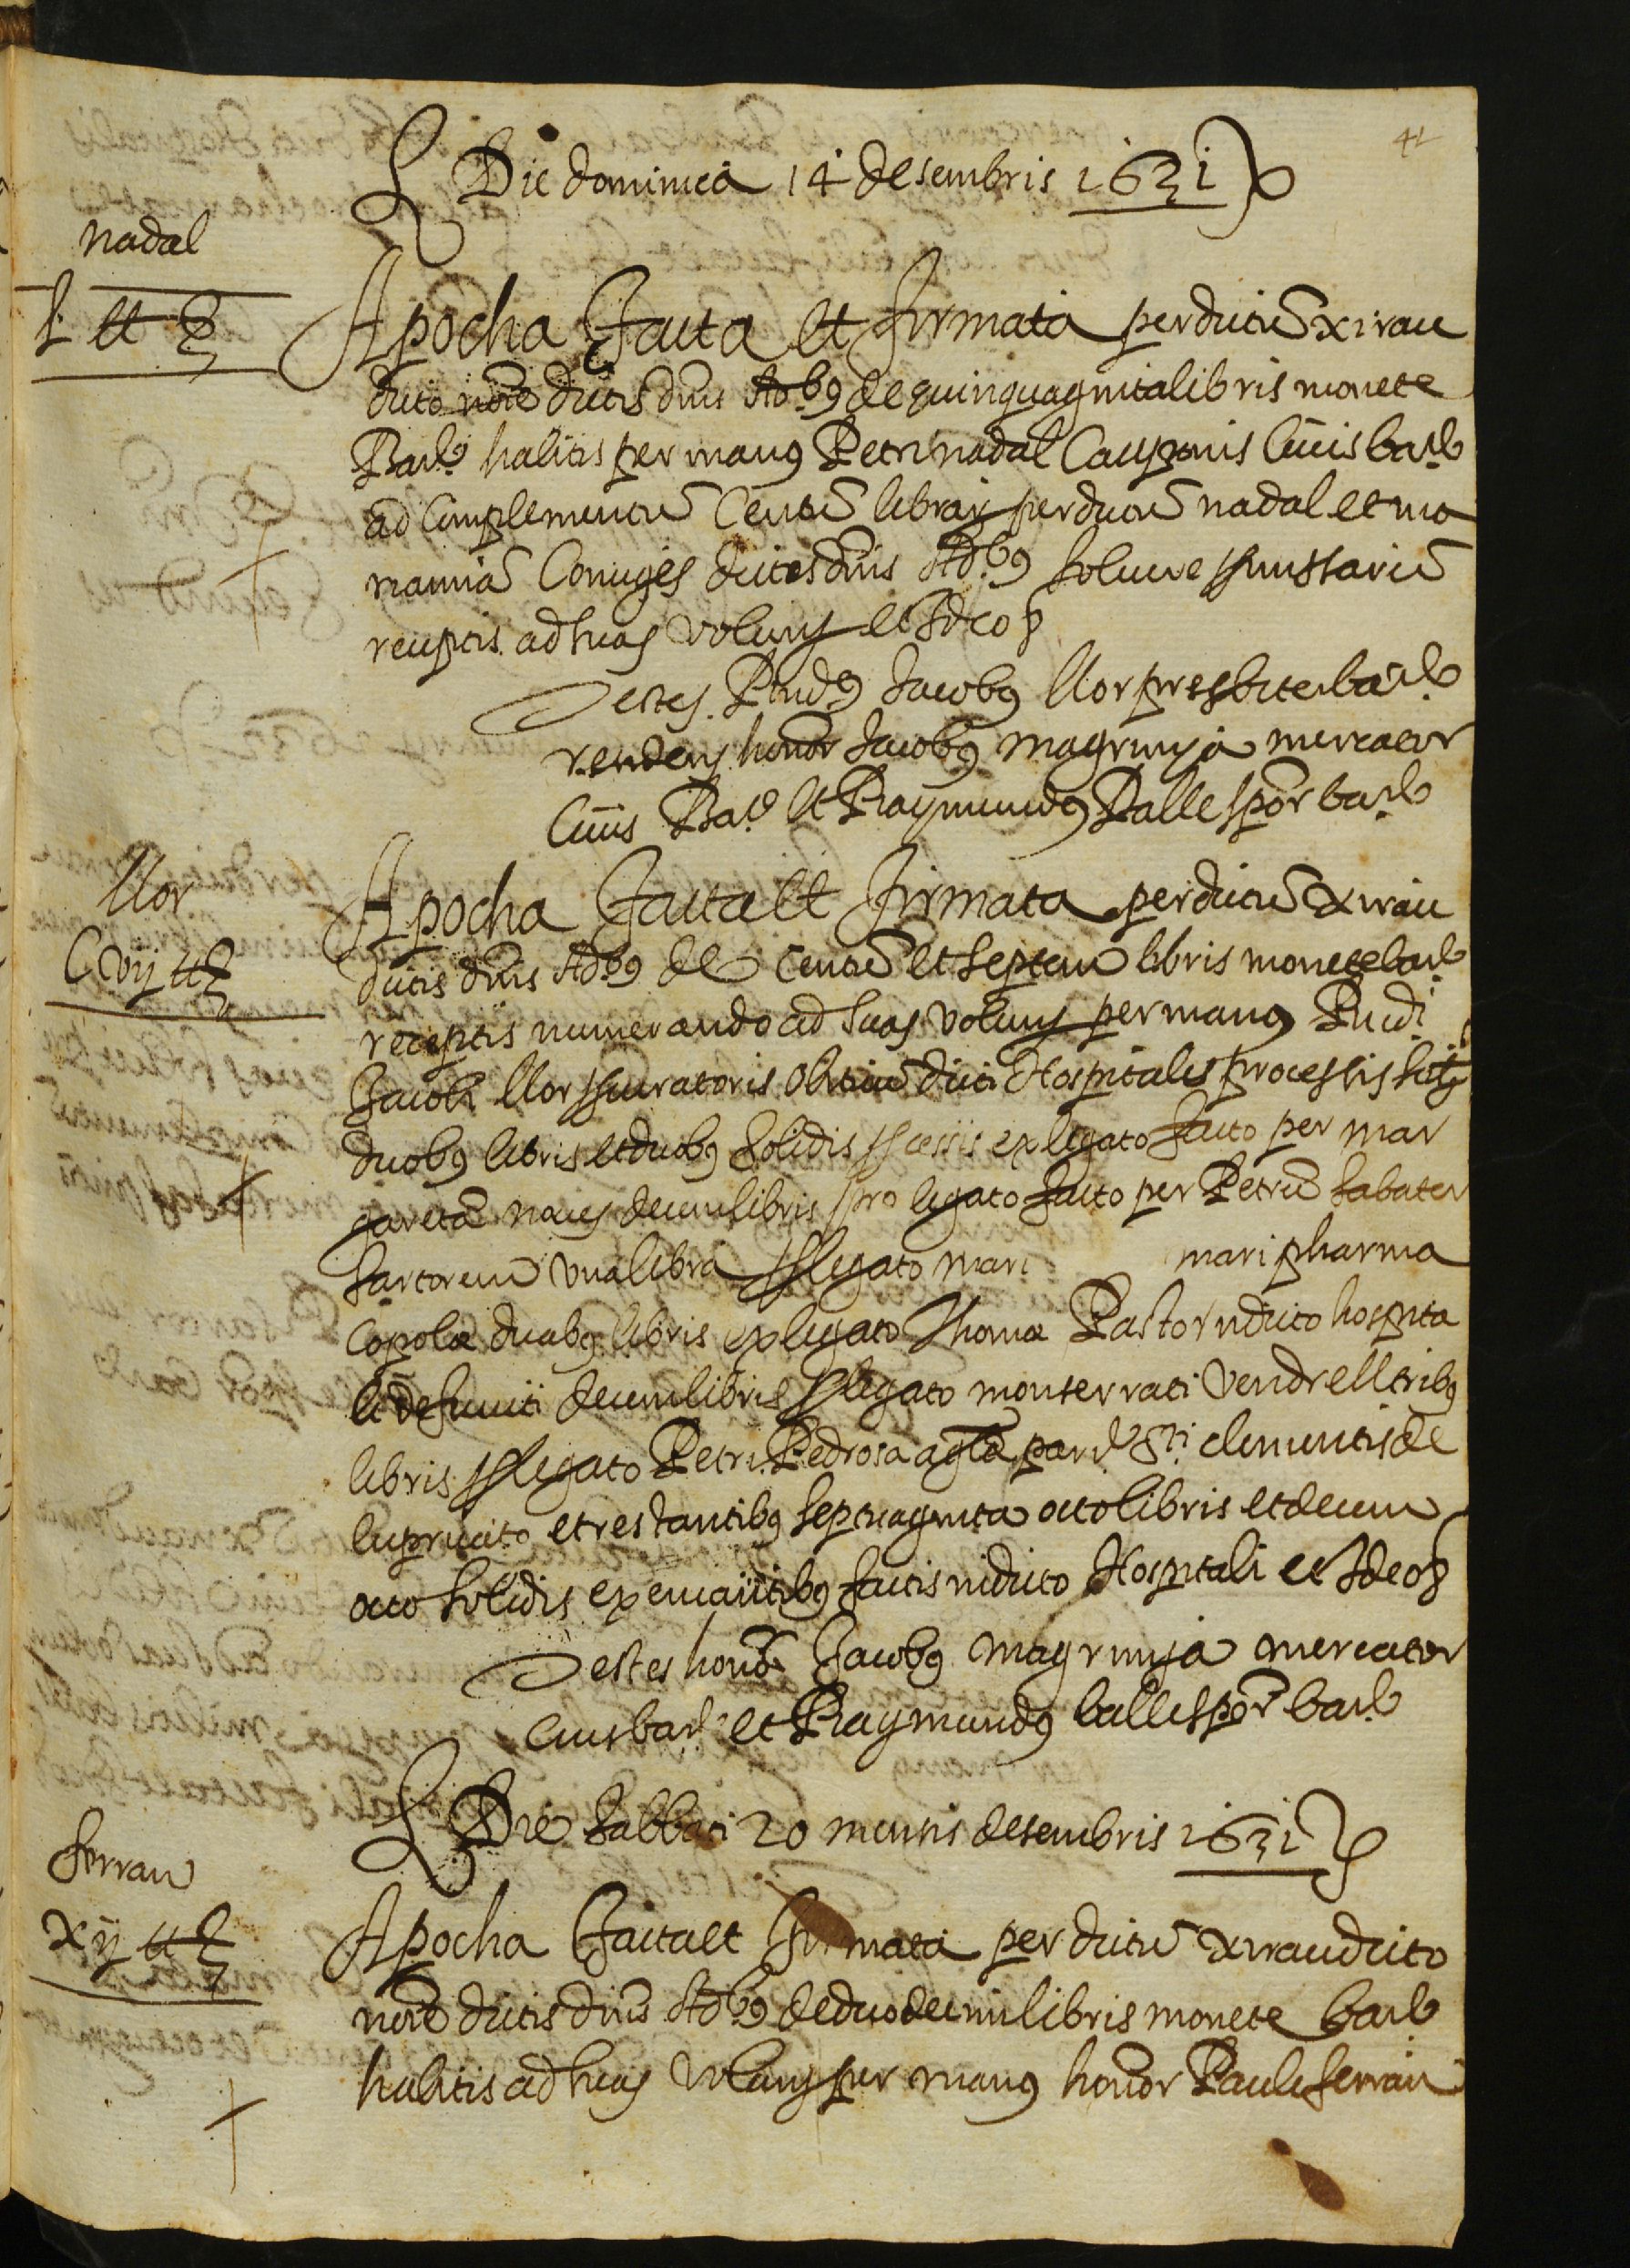 41
Die dominica 14 desembris 1631
nadal
L ll
Apocha facta et firmata per dictũ xirau
dicto noĩe dictis dnis Adb9 de quinquaginta libris monete
Barᵉ habitis per manus Petri nadal Cauponis Civis barᵉ
ad Complementũ Centũ librar per dictũ nadal et ma
riannã Coniuges dictes dnis Adb9 solvere
receptis ad suas volunts et Ideo &
Testes Rndus Jacobus llor presbiter barᵉ
residens honor Jacobus magrinya mercator
Civis Barᵉ et Raymundus Balle spõr barᵉ
llor
C vij ll
Apocha facta et firmata per dictũ xirau
dictis dnis Adb9 de Centũ et septem libris monete barᵉ
receptis numerando ad suas volunts per manus Rndi
Jacobi llor procuratoris dicti Hospitalis processis
duobus libris et duobus solidis ex legato facto per mar
garetã decem libris pro legato facto per Petrũ Sabater
Sartorem una libra legato mari mari pharma
copolæ duabus libris ex legato Thomæ Pastor in dicto hospita
li defuncti decem libris legato monserrati Vendrell tribus
libris legato Petri Pedrosa agᵉ parᵉ Sti clementis de
lupricato et restantibus septuaginta octo libris et decem
octo solidis ex encantibus factis in dicto Hospitali et Ideo &
Testes honor Jacobus magrinya mercator
Civis barᵉ et Raymundus balle spõr barᵉ
Die Sabbati 20 mensis desembris 1631
ferran
xij ll
Apocha facta et firmata per dictũ xirau dicto
noĩe dictis dnis Adb9 de duodecim libris monete barᵉ
habitis ad suas volunts per manus honor Pauli ferran